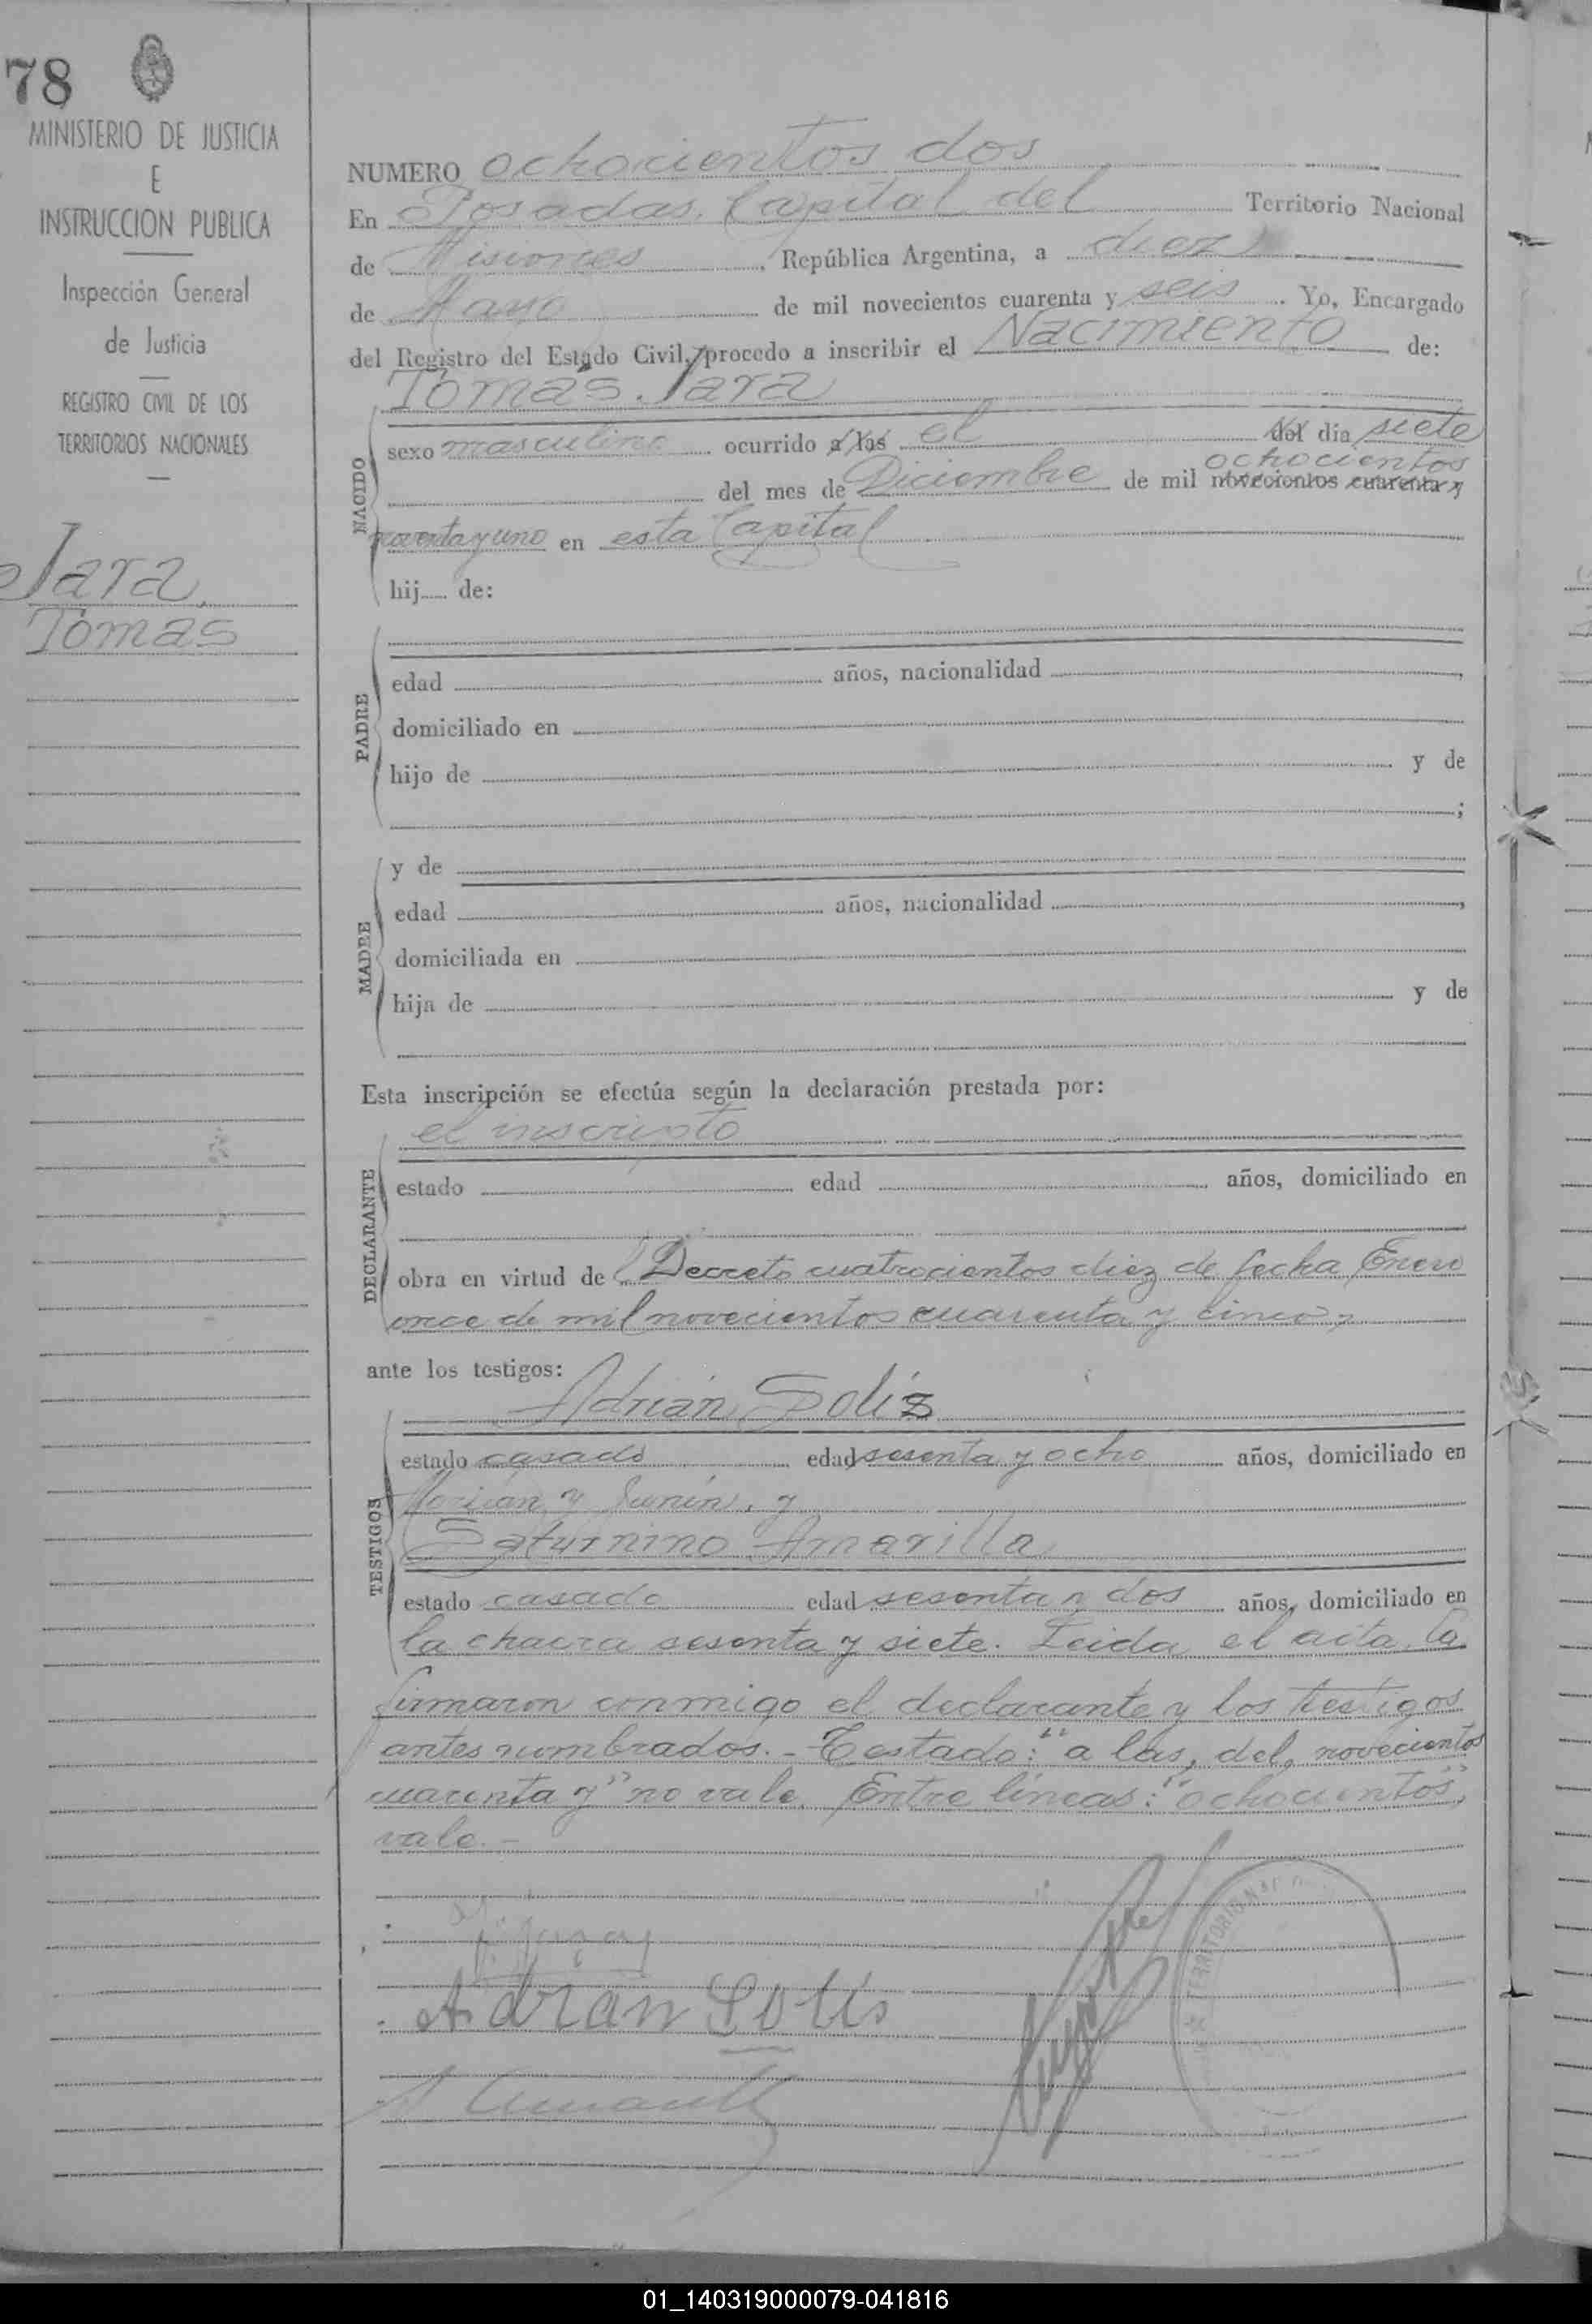 78
MINISTERIO DE JUSTICIA
E
INSTRUCCION PUBLICA
Inspección General
de Justicia
REGISTRO CIVIL DE LOS
TERRITORIOS NACIONALES
Jara,
Tomas
NUMERO ochocientos dos
En Posadas, Capital del Territorio Nacional
de Misiones, República Argentina, a diez
de Mayo de mil novecientos cuarenta y seis. Yo, Encargado
del Registro del Estado Civil, procedo a inscribir el Nacimiento de:
Tomas Jara
NACIDO
sexo masculino ocurrido a las el del día siete
ochocientos
del mes de Diciembre de mil novecientos cuarenta y
noventa y uno en esta Capital
hij de:
PADRE
edad años, nacionalidad
domiciliado en
hijo de y de
;
MADRE
y de
edad años, nacionalidad ,
domiciliada en
hija de y de
Esta inscripción se efectúa según la declaración prestada por:
DECLARANTE
el inscripto
estado edad años, domiciliado en
obra en virtud de Decreto cuatrocientos diez de fecha Enero
once de mil novecientos cuarenta y cinco,
ante los testigos:
TESTIGOS
Adrián Solís
estado casado edad sesenta y ocho años, domiciliado en
y Junín, y
Saturnino Amarilla
estado casado edad sesenta y dos años, domiciliado en
la chacra sesenta y siete. Leida el acta, la
firmaron conmigo el declarante y los testigos
antes nombrados. - Testado: "a las, del, novecientos
cuarenta y" no vale. Entre líneas: "ochocientos",
vale. -
Adrian Solis
TERRITORIO
01_140319000079-041816